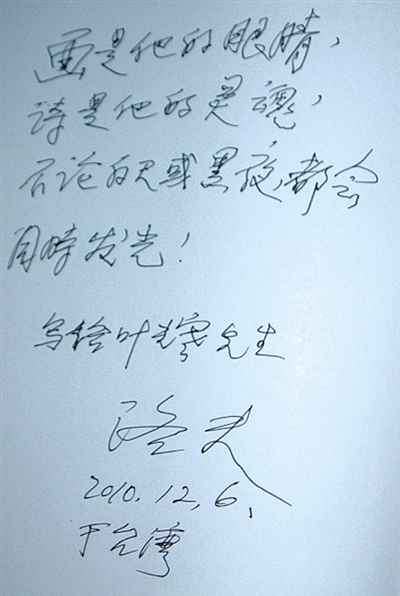 画是他的眼睛，
诗是他的灵魂，
不论白天或黑夜，都会
同時发光！
写给叶光寒先生
洛夫
2010.12.6、
于台湾